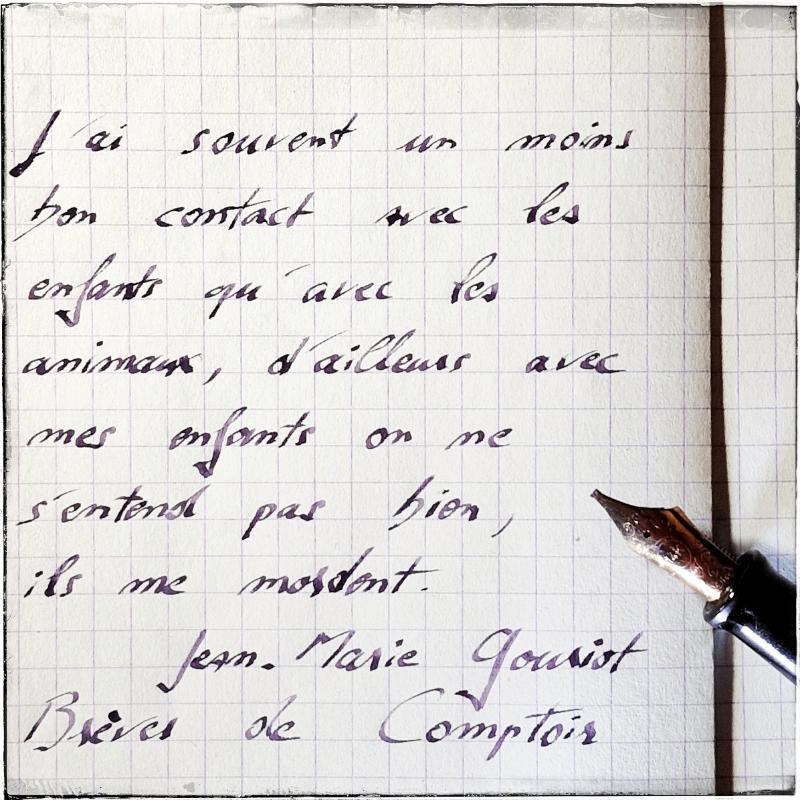 J'ai souvent un moins
bon contact avec les
enfants qu'avec les
animaux, d'ailleurs avec
mes enfants on ne
s'entend pas bien,
ils me mordent.
Jean-Marie Gouriot
Brèves de Comptoir